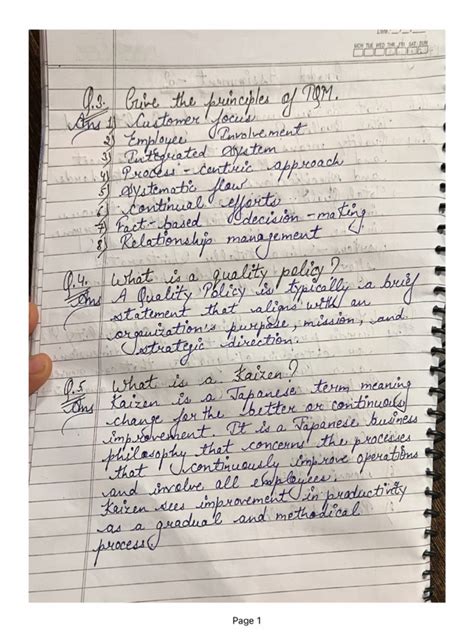 Date: __/__/__
MON TUE WED THU FRI SAT SUN
Q.3. Give the principles of TQM.
Ans 1) Customer focus
2) Employee Involvement
3) Integrated System
4) Process-centric approach
5) Systematic flow
6) Continual efforts
7) Fact-based decision-making
8) Relationship management
Q.4. What is a quality policy?
Ans A Quality Policy is typically a brief
statement that aligns with an
organization's purpose, mission, and
strategic direction.
Q.5 What is a Kaizen?
Ans Kaizen is a Japanese term meaning
change for the better or continuous
improvement. It is a Japanese business
philosophy that concerns the processes
that continuously improve operations
and involve all employees.
Kaizen sees improvement in productivity
as a gradual and methodical
process.
Page 1